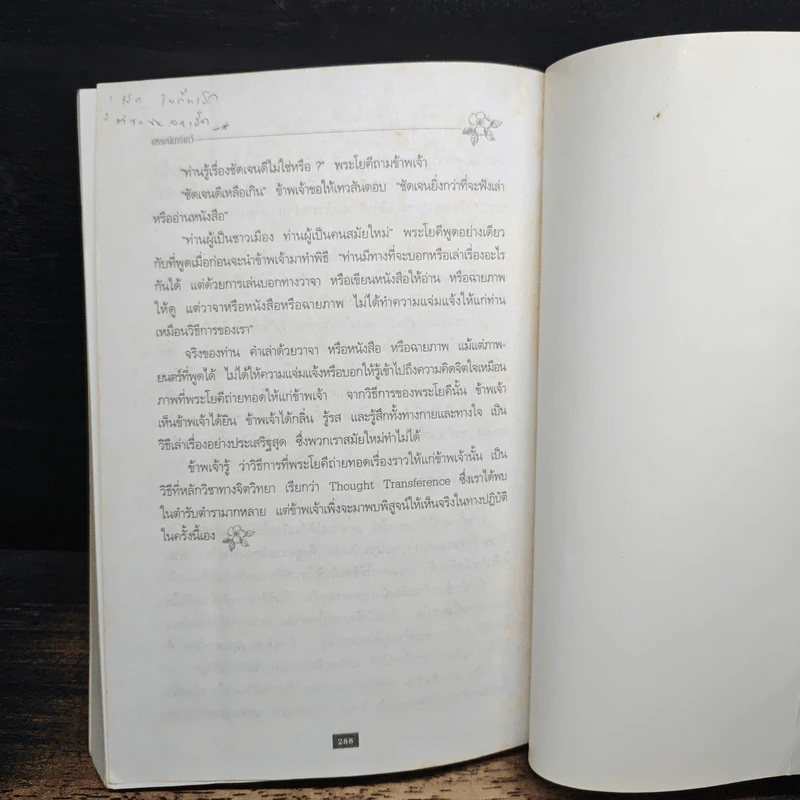 อรรคนีการ์ตวี
"ท่านรู้เรื่องชัดเจนดีไม่ใช่หรือ ?" พระโยคีถามข้าพเจ้า
"ชัดเจนดีเหลือเกิน" ข้าพเจ้าขอให้เทวสันตอบ "ชัดเจนยิ่งกว่าที่จะฟังเล่า
หรืออ่านหนังสือ"
"ท่านผู้เป็นชาวเมือง ท่านผู้เป็นคนสมัยใหม่" พระโยคีพูดอย่างเดียว
กับที่พูดเมื่อก่อนจะนำข้าพเจ้ามาทำพิธี "ท่านมีทางที่จะบอกหรือเล่าเรื่องอะไร
กันได้ แต่ด้วยการเล่นบอกทางวาจา หรือเขียนหนังสือให้อ่าน หรือฉายภาพ
ให้ดู แต่วาจาหรือหนังสือหรือฉายภาพ ไม่ได้ทำความแจ่มแจ้งให้แก่ท่าน
เหมือนวิธีการของเรา"
จริงของท่าน คำเล่าด้วยวาจา หรือหนังสือ หรือฉายภาพ แม้แต่ภาพ-
ยนตร์ที่พูดได้ ไม่ได้ให้ความแจ่มแจ้งหรือบอกให้รู้เข้าไปถึงความคิดจิตใจเหมือน
ภาพที่พระโยคีถ่ายทอดให้แก่ข้าพเจ้า จากวิธีการของพระโยคีนั้น ข้าพเจ้า
เห็นข้าพเจ้าได้ยิน ข้าพเจ้าได้กลิ่น รู้รส และรู้สึกทั้งทางกายและทางใจ เป็น
วิธีเล่าเรื่องอย่างประเสริฐสุด ซึ่งพวกเราสมัยใหม่ทำไม่ได้
ข้าพเจ้ารู้ ว่าวิธีการที่พระโยคีถ่ายทอดเรื่องราวให้แก่ข้าพเจ้านั้น เป็น
วิธีที่หลักวิชาทางจิตวิทยา เรียกว่า Thought Transference ซึ่งเราได้พบ
ในตำรับตำรามากหลาย แต่ข้าพเจ้าเพิ่งจะมาพบพิสูจน์ให้เห็นจริงในทางปฏิบัติ
ในครั้งนี้เอง
288